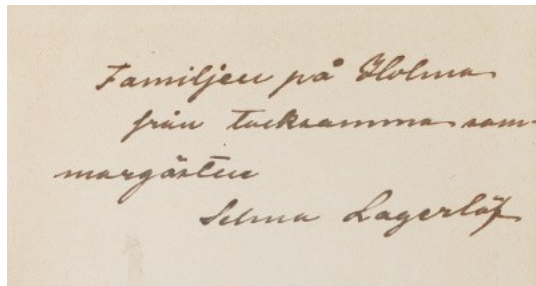 Familjen på Holma
från tacksamma som-
margästen
Selma Lagerlöf